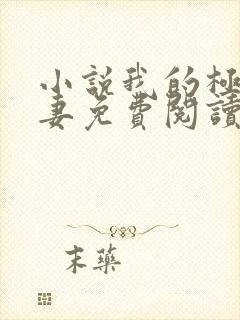 小説我的極
妻免費閱讀
末藥